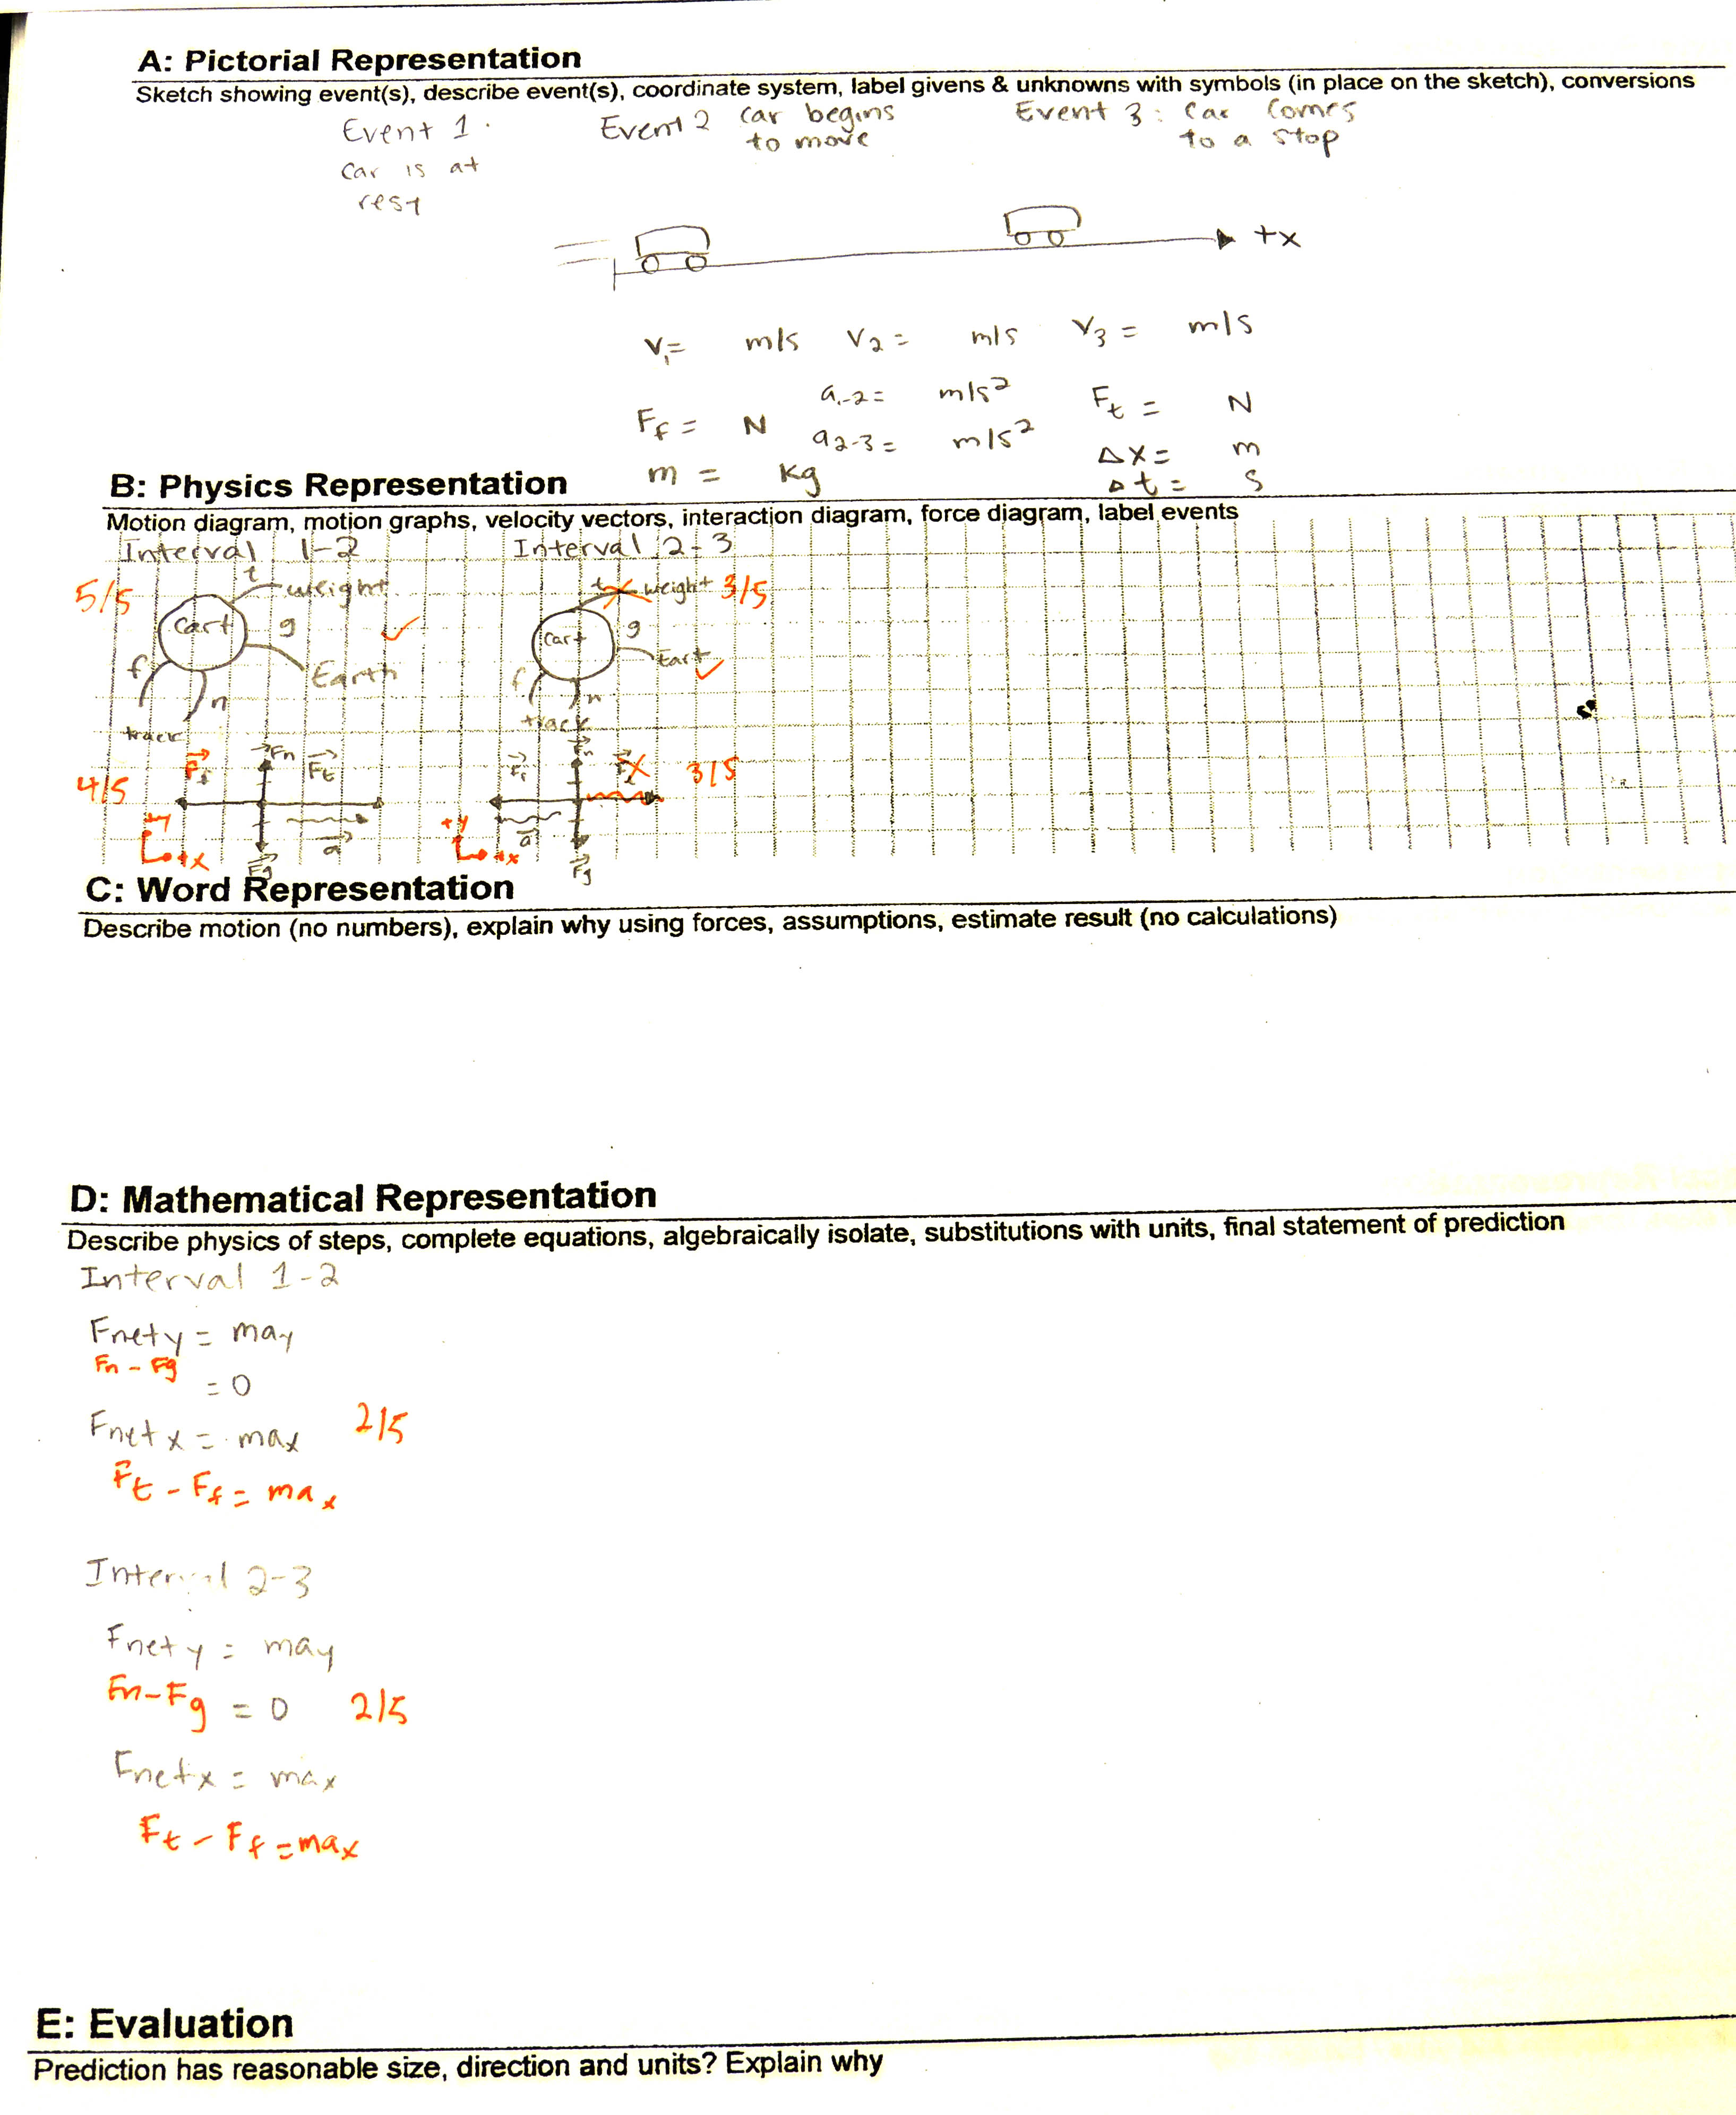 A: Pictorial Representation
Sketch showing event(s), describe event(s), coordinate system, label givens & unknowns with symbols (in place on the sketch), conversions
Event 1.
Car is at
rest
Event 2 car begins
to move
Event 3: Car comes
to a stop
+x
V₁= m/s V₂= m/s V₃= m/s
a₁-₂= m/s²
Ff= N
a₂-₃= m/s²
m= kg
Ft= N
Δx= m
Δt= s
B: Physics Representation
Motion diagram, motion graphs, velocity vectors, interaction diagram, force diagram, label events
Interval 1-2
5/5
t weight
Cart
g
Earth
f
n
track
4/5
Ff
Fn
Ft
a
Fg
+y
+x
Interval 2-3
t weight 3/5
Cart
g
Eart
f
n
track
Ff
Fn
3/5
a
Fg
+y
+x
C: Word Representation
Describe motion (no numbers), explain why using forces, assumptions, estimate result (no calculations)
D: Mathematical Representation
Describe physics of steps, complete equations, algebraically isolate, substitutions with units, final statement of prediction
Interval 1-2
Fnety = may
Fn - Fg
= 0
Fnetx = max 2/5
Ft - Ff = max
Interval 2-3
Fnety = may
Fn-Fg = 0 2/5
Fnetx = max
Ft - Ff = max
E: Evaluation
Prediction has reasonable size, direction and units? Explain why